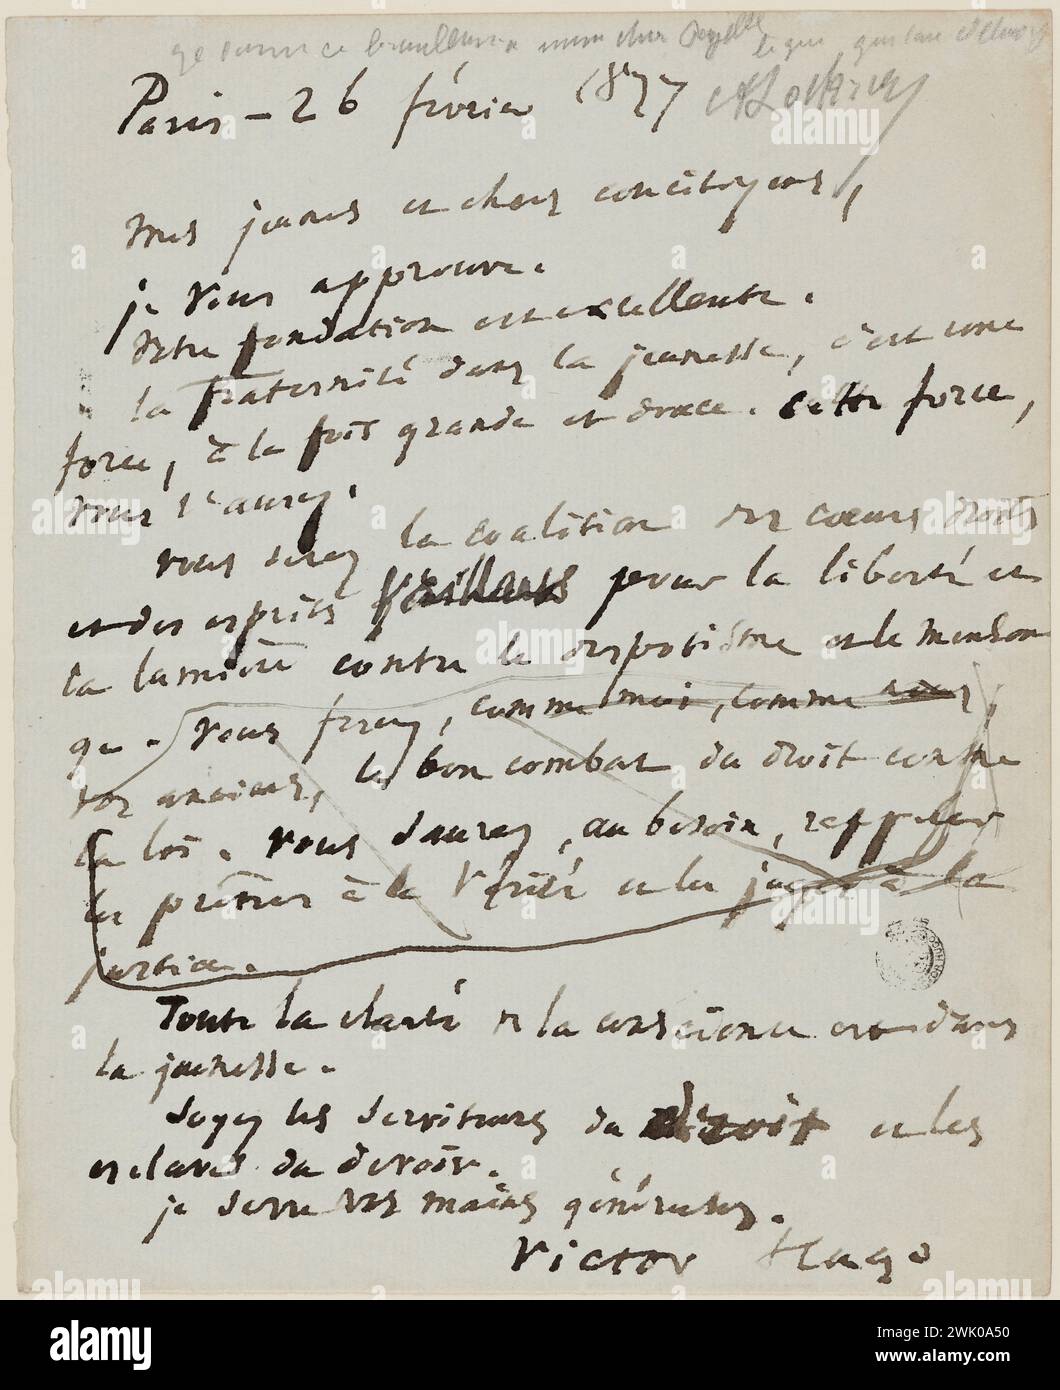 Paris - 26 février 1877
mes jeunes et chers concitoyens,
je vous approuve.
Votre fondation est excellente.
la fraternité dans la jeunesse, c'est une
force, à la fois grande et douce. cette force,
vous l'aurez.
vous serez la coalition des cœurs droits
et des esprits vaillants pour la liberté et
la lumière contre le despotisme et le menson
ge. Vous ferez, comme moi, comme
vos anciens, le bon combat du droit contre
la loi. Vous saurez, au besoin, rappeler
les prêtres à la Vérité et les juges à la
justice.
Toute la clarté de la conscience est dans
la jeunesse.
Soyez les serviteurs du droit et les
esclaves du devoir.
je serre vos mains généreuses.
Victor Hugo
alamy
Image ID: 2WK0A50
www.alamy.com